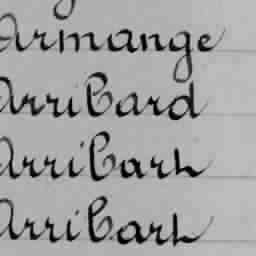 Armange
Arribard
Arribart
Arribart